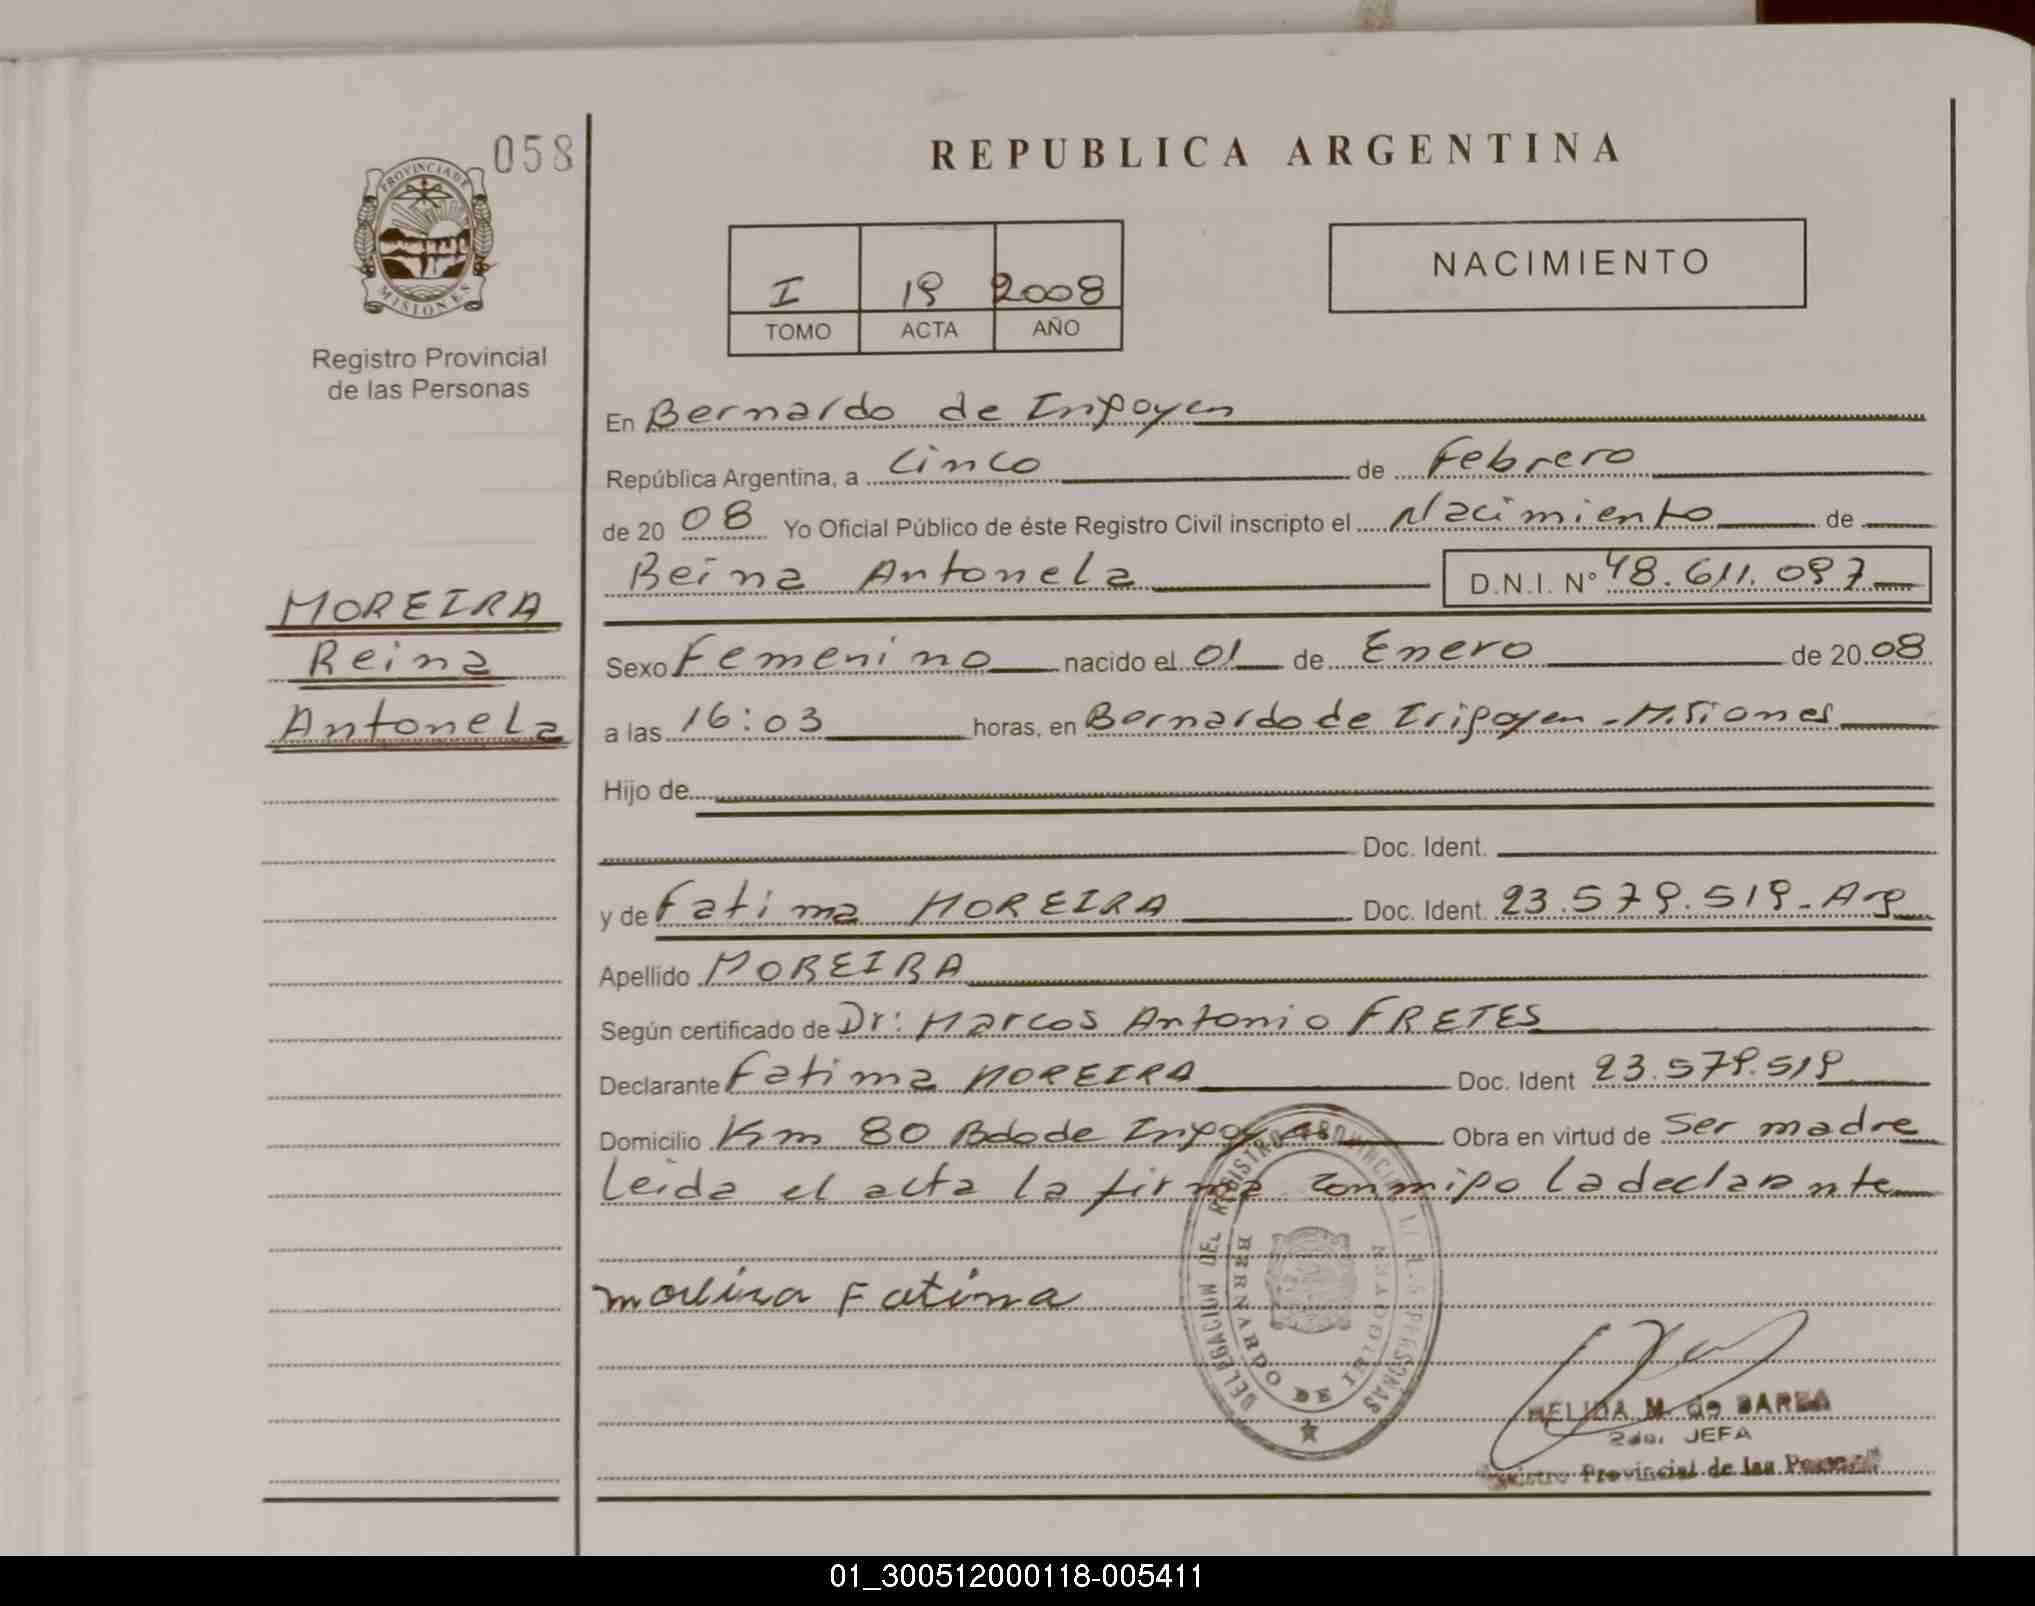 058
REPUBLICA ARGENTINA
PROVINCIA DE
MISIONES
Registro Provincial
de las Personas
I 19 2008
TOMO ACTA AÑO
NACIMIENTO
En Bernardo de Irigoyen
República Argentina, a Cinco de Febrero
de 20 08 Yo Oficial Público de éste Registro Civil inscripto el Nacimiento de
Reina Antonela D.N.I. N° 48.611.097
MOREIRA
Reina
Antonela
Sexo Femenino nacido el 01 de Enero de 20 08
a las 16:03 horas, en Bernardo de Irigoyen - Misiones
Hijo de
Doc. Ident.
y de Fatima MOREIRA Doc. Ident. 23.579.519 - Arg
Apellido MOREIRA
Según certificado de Dr: Marcos Antonio FRETES
Declarante Fatima MOREIRA Doc. Ident 23.579.519
Domicilio Km 80 Bdo de Irigoyen Obra en virtud de Ser madre
Leida el acta la firma conmigo la declarante
Fatima
DELEGACION DEL REGISTRO PROVINCIAL DE LAS PERSONAS
BERNARDO DE IRIGOYEN
HELIDA M. de BAREA
2da. JEFA
Registro Provincial de las Personas
01_300512000118-005411